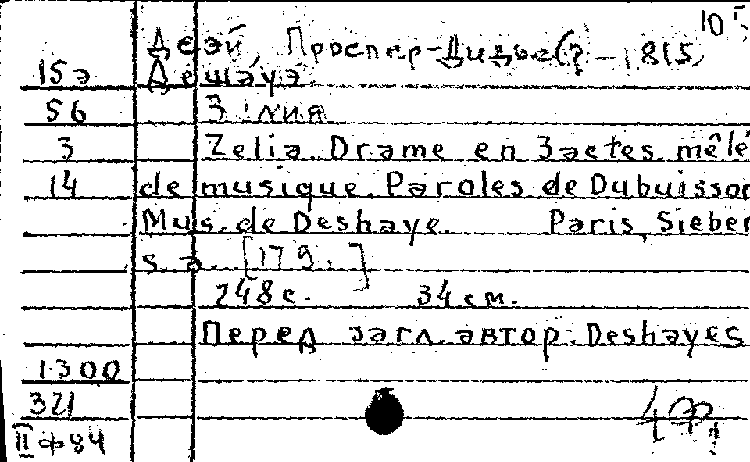 10
Дезй, Проспер-Дидье (? - 1815)
15э Дешауэ.
56 Зелия
3 Zelia. Drame en 3 actes mêlé
14 de musique. Paroles de Dubuisson
Mus. de Deshaye. Paris, Sieber
s. a. [179.]
248 с. 34 см.
Перед загл. автор: Deshayes
1300
321
II ф 84